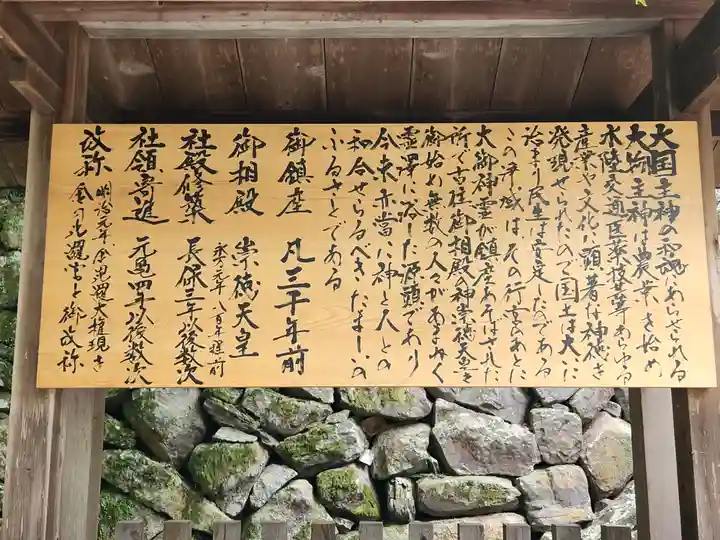 大国主神の和魂にあらせられる
大物主神は農業を始め
水陸交通医薬技芸あらゆる
産業や文化に顕著な神徳を
発現せられたので国土は大いに
治まり民生は育定したのである
この浄域はその行宮のあとに
大御神霊が鎮座あそばされた
所で古往御相殿の神崇徳天皇を
御始め無数の人々があまねく
霊澤に浴した源頭であり
今来亦当に神と人との
和合せらるべきたましいの
ふるさとである
御鎮座 凡三千年前
御相殿 崇徳天皇
永万元年 八百年程前
社殿修築 長保三年以後数次
社領寄進 元亀四年以後数次
改称 明治元年金毘羅大権現を
金刀比羅宮と御改称